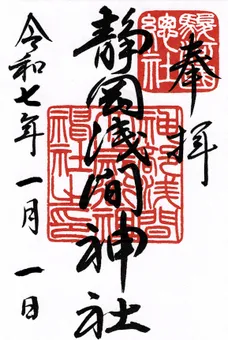 奉拝
駿河國
總社
静岡浅間神社
令和七年一月一日